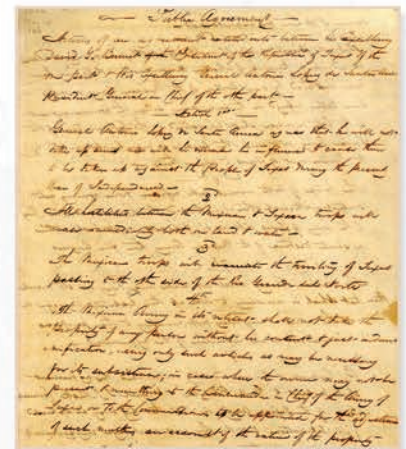 Public Agreement
Articles of an agreement entered into between his Excellency
David G. Burnet President of the Republic of Texas of the
one part & His Excellency General Antonio Lopez de Santa Anna
President General in Chief of the other part
Article 1st
General Antonio Lopez de Santa Anna agrees that he will not
take up arms nor will he his influence to cause them
to be taken up against the People of Texas during the present
war of Independence
2
All hostilities between the Mexican & Texan troops will
cease immediately both on land & water
3
The Mexican troops will evacuate the territory of Texas
passing to the other side of the Rio Grande del Norte
4th
The Mexican Army in its retreat shall not take the
property of any person without his consent & just
indemnification, using only such articles as may be necessary
for its subsistence, in cases where the owner may not be
present & remitting to the Commander in Chief of the army of
Texas or to the Commissioners to be appointed for the adjustment
of such matters an account of the value of the property